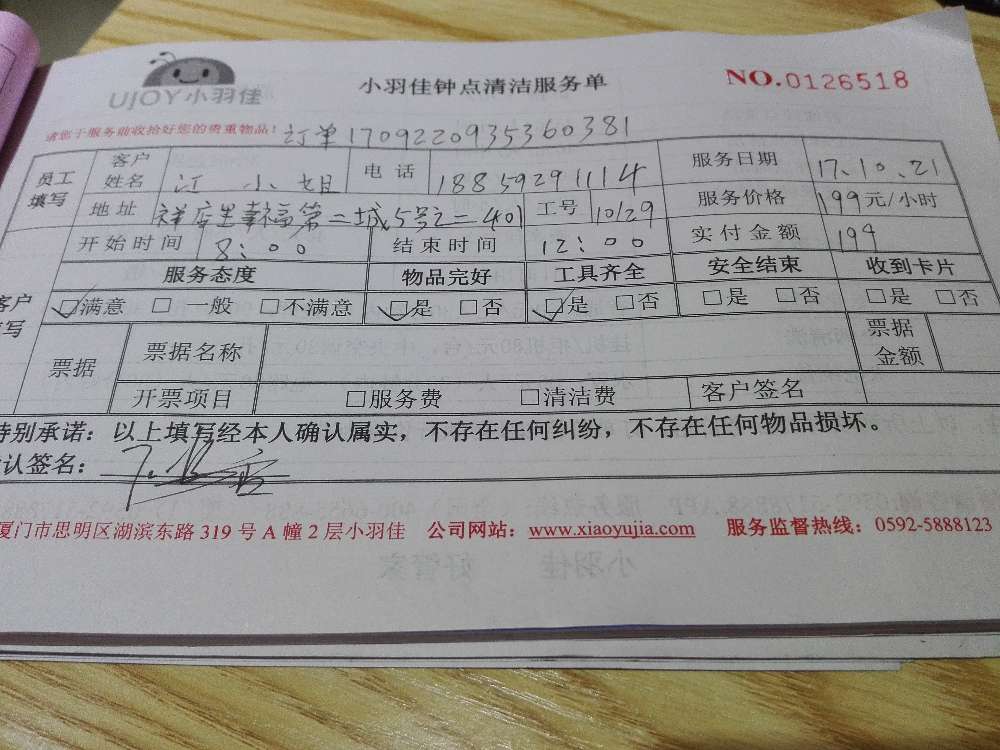 UjOY小羽佳 小羽佳钟点清洁服务单 NO.0126518
请您于服务前收拾好您的贵重物品! 订单1709220935360381
员工填写 客户姓名 江小姐 电话 18859291114 服务日期 17.10.21
地址 祥店里幸福第二城5号之二401 工号 10129 服务价格 199元/小时
开始时间 8:00 结束时间 12:00 实付金额 199
服务态度 物品完好 工具齐全 安全结束 收到卡片
客户填写 ☑满意 □一般 □不满意 ☑是 □否 ☑是 □否 □是 □否 □是 □否
票据 票据名称 票据金额
开票项目 □服务费 □清洁费 客户签名
特别承诺：以上填写经本人确认属实，不存在任何纠纷，不存在任何物品损坏。
认签名：
厦门市思明区湖滨东路 319 号 A 幢 2 层小羽佳 公司网站：www.xiaoyujia.com 服务监督热线：0592-5888123